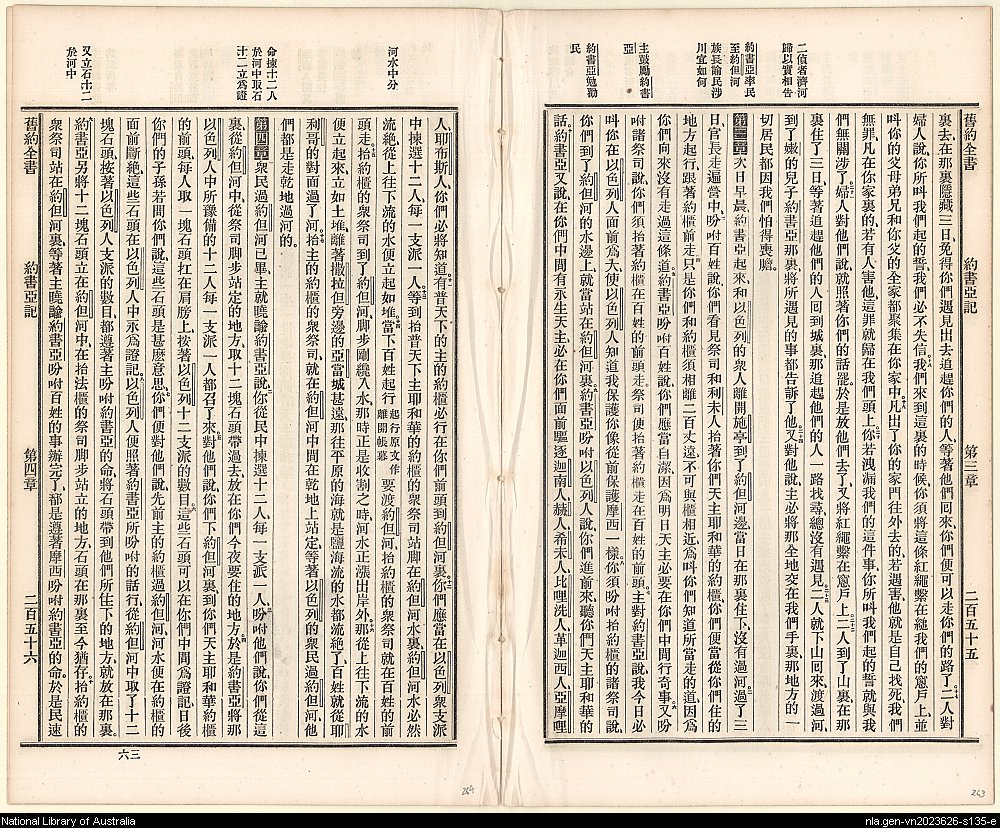 二偵者濟河
歸以實相告
約書亞率民
至約但河
族長諭民涉
川宜如何
主鼓勵約書
亞
約書亞勉勸
民
舊約全書 約書亞記 第三章 二百五十五
裏去、在那裏隱藏三日、免得你們遇見出去追趕你們的人、等著他們囘來、你們便可以走你們的路了。二人對
婦人說、你所叫我們起的誓、我們必不失信。我們來到這裏的時候、你須將這條紅繩繫在縋我們的窻戶上、並
叫你的父母弟兄和你父的全家都聚集在你家中。凡出了你的家門往外去的、若遇害、他就是自己找死、我們
無罪、凡在你家裏的、若有人害他、這罪就歸在我們頭上。你若洩漏我們的這件事、你所叫我們起的誓就與我
們無關涉了。婦人對他們說、就照著你們的話罷。於是放他們去了、又將紅繩繫在窻戶上。二人到了山裏、在那
裏住了三日、等著追趕他們的人囘到城裏、那追趕他們的人一路找尋、總沒有遇見。二人就下山囘來、渡過河
到了嫩的兒子約書亞那裏、將所遇見的事都告訴了他。又對他說、主必將那全地交在我們手裏、那地方的一
切居民都因我們怕得喪膽。
第三章 次日早晨、約書亞起來、和以色列的衆人離開施亭、到了約但河邊、當日在那裏住下、沒有過河。過了三
日、官長走遍營中、吩咐百姓說、你們看見祭司和利未人抬著你們天主耶和華的約櫃、你們便當從你們住的
地方起行、跟著約櫃前走。只是你們和約櫃須相離二百丈遠、不可與櫃相近、爲叫你們知道所當走的道、因爲
你們向來沒有走過這條道。約書亞吩咐百姓說、你們應當自潔、因爲明日天主必要在你們中間行奇事。又吩
咐諸祭司說、你們須抬著約櫃在百姓的前頭走。祭司便抬著約櫃走在百姓的前頭。主對約書亞說、我今日必
叫你在以色列人面前爲大、使以色列人知道我保護你像從前保護摩西一樣。你須吩咐抬約櫃的諸祭司說、
你們到了約但河的水邊上、就當站在約但河裏。約書亞吩咐以色列人說、你們進前來、聽你們天主耶和華的
話。約書亞又說、在你們中間有永生天主、必在你們面前驅逐迦南人、赫人、希未人、比哩洗人、革迦西人、亞摩哩
河水中分
命揀十二人
於河中取石
十二立爲證
又立石十二
於河中
人、耶布斯人、你們必將知道。有普天下的主的約櫃必行在你們前頭到約但河裏。你們應當在以色列衆支派
中揀選十二人、每一支派一人。等到抬普天下主耶和華的約櫃的衆祭司站脚在約但河水裏、約但河水必然
流絕、從上往下流的水便立起如堆。當下百姓起行 起行原文作離開帳幕 要渡約但河、抬約櫃的衆祭司就在百姓的前
頭走。抬約櫃的衆祭司到了約但河、脚步剛纔入水、那時正是收割之時、河水正漲出岸外。那從上往下流的水
便立起來、立如土堆、離著撒拉但旁邊的亞當城甚遠、那往平原的海、就是鹽海流的水、都流絕了、百姓就從耶
利哥的對面過了河。抬主的約櫃的衆祭司就在約但河中間在乾地上站定、等著以色列的衆民過約但河、他
們都是走乾地過河的。
第四章 衆民過約但河已畢、主就曉諭約書亞說、你從民中揀選十二人、每一支派一人、吩咐他們說、你們從這
裏從約但河中、從祭司脚步站定的地方、取十二塊石頭帶過去、放在你們今夜要住的地方。於是約書亞將那
以色列人中所豫備的十二人、每一支派一人、都召了來、對他們說、你們下約但河裏到你們天主耶和華約櫃
的前頭、每人取一塊石頭扛在肩膀上、按著以色列十二支派的數目。這些石頭可以在你們中間爲證記、日後
你們的子孫若問你們說、這些石頭是甚麼意思、你們便對他們說、先前主的約櫃過約但河、河水便在約櫃的
面前斷絕、這些石頭在以色列人中永爲證記。以色列人便照著約書亞所吩咐的話行、從約但河中取了十二
塊石頭、按著以色列人支派的數目、都遵著主吩咐約書亞的命、將石頭帶到他們所住下的地方、就放在那裏。
約書亞另將十二塊石頭立在約但河中、在抬法櫃的祭司脚步站立的地方、石頭在那裏至今猶存。抬約櫃的
衆祭司站在約但河裏、等著主曉諭約書亞吩咐百姓的事辦完了、都是遵著摩西吩咐約書亞的命。於是民速
舊約全書 約書亞記 第四章 二百五十六
三六
264
263
National Library of Australia
nla.gen-vn2023626-s135-e